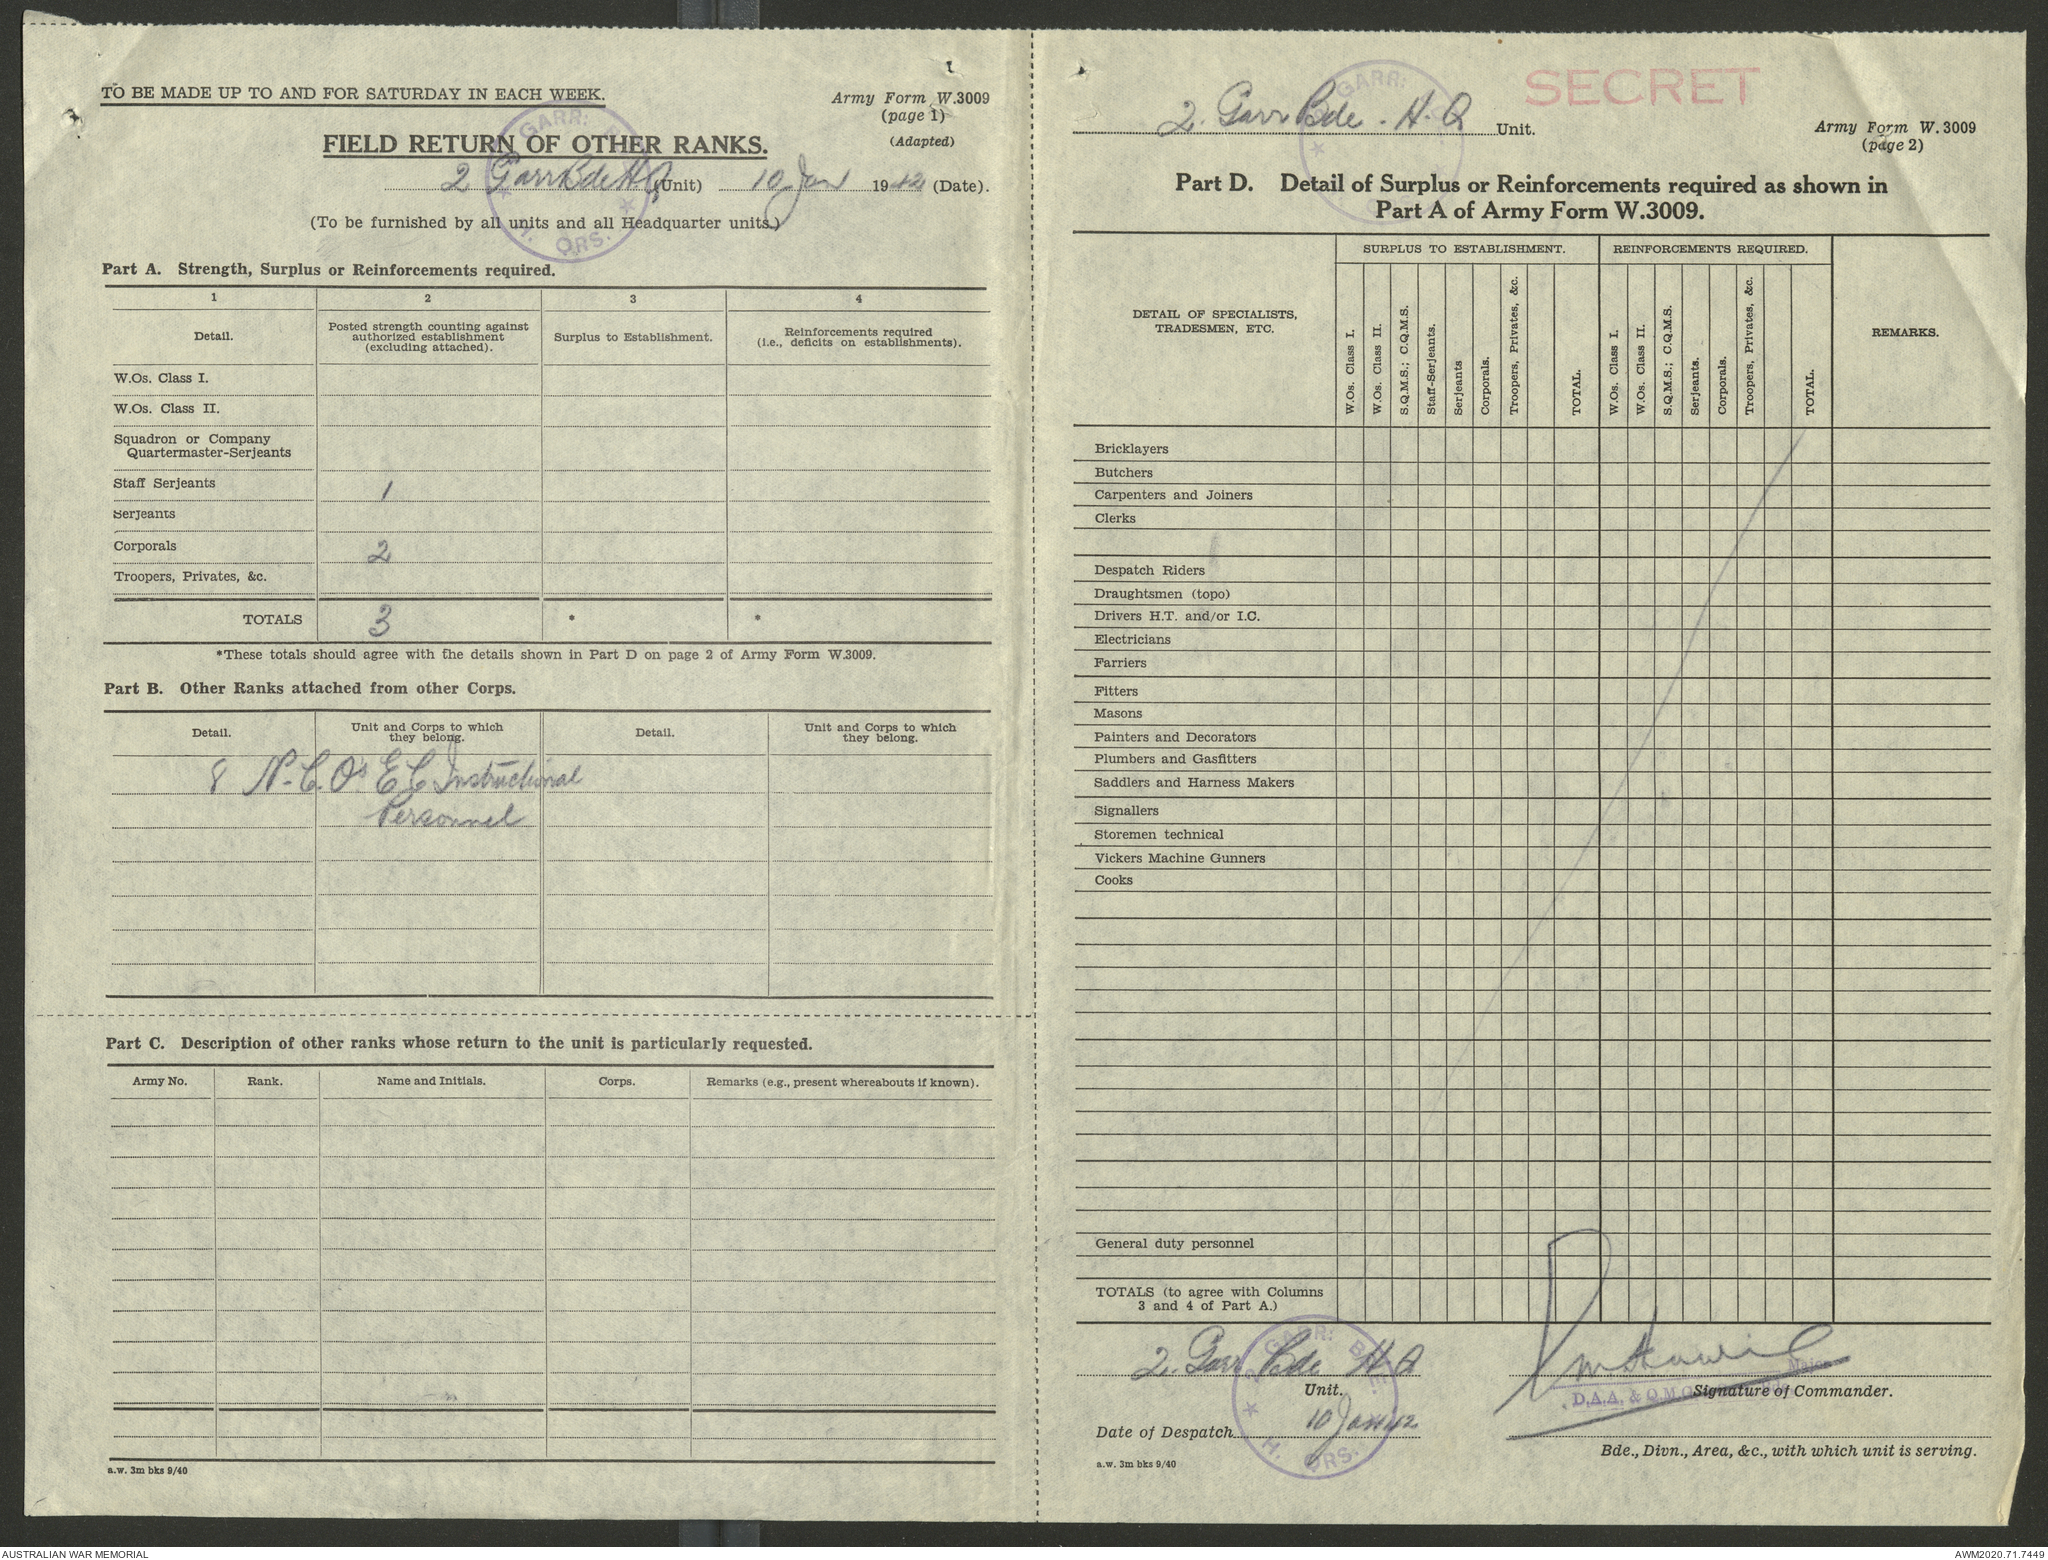 TO BE MADE UP TO AND FOR SATURDAY IN EACH WEEK.
Army Form W.3009
(page 1)
(Adapted)
FIELD RETURN OF OTHER RANKS.
2 Garr Bde H.Q (Unit) 10 Jan 1942 (Date).
(To be furnished by all units and all Headquarter units.)
GARR:
H. QRS.
Part A. Strength, Surplus or Reinforcements required.
1 2 3 4
Detail. Posted strength counting against authorized establishment (excluding attached). Surplus to Establishment. Reinforcements required (i.e., deficits on establishments).
W.Os. Class I.
W.Os. Class II.
Squadron or Company
Quartermaster-Serjeants
Staff Serjeants 1
Serjeants
Corporals 2
Troopers, Privates, &c.
TOTALS 3 * *
*These totals should agree with the details shown in Part D on page 2 of Army Form W.3009.
Part B. Other Ranks attached from other Corps.
Detail. Unit and Corps to which they belong. Detail. Unit and Corps to which they belong.
8 N.C.O's E.C Instructional
Personnel
Part C. Description of other ranks whose return to the unit is particularly requested.
Army No. Rank. Name and Initials. Corps. Remarks (e.g., present whereabouts if known).
a.w. 3m bks 9/40
SECRET
GARR:
2. Garr Bde. H.Q Unit.
Army Form W.3009
(page 2)
Part D. Detail of Surplus or Reinforcements required as shown in
Part A of Army Form W.3009.
SURPLUS TO ESTABLISHMENT. REINFORCEMENTS REQUIRED.
DETAIL OF SPECIALISTS,
TRADESMEN, ETC.
W.Os. Class I. W.Os. Class II. S.Q.M.S.; C.Q.M.S. Staff-Serjeants. Serjeants Corporals. Troopers, Privates, &c. TOTAL. W.Os. Class I. W.Os. Class II. S.Q.M.S.; C.Q.M.S. Serjeants. Corporals. Troopers, Privates, &c. TOTAL. REMARKS.
Bricklayers
Butchers
Carpenters and Joiners
Clerks
Despatch Riders
Draughtsmen (topo)
Drivers H.T. and/or I.C.
Electricians
Farriers
Fitters
Masons
Painters and Decorators
Plumbers and Gasfitters
Saddlers and Harness Makers
Signallers
Storemen technical
Vickers Machine Gunners
Cooks
General duty personnel
TOTALS (to agree with Columns
3 and 4 of Part A.)
2. Garr Bde H.Q
Unit.
GARR: B
H. QRS.
Major
D.A.A. & Q.M.G.
Signature of Commander.
Date of Despatch 10 Jan 42
Bde., Divn., Area, &c., with which unit is serving.
a.w. 3m bks 9/40
AUSTRALIAN WAR MEMORIAL
AWM2020.71.7449